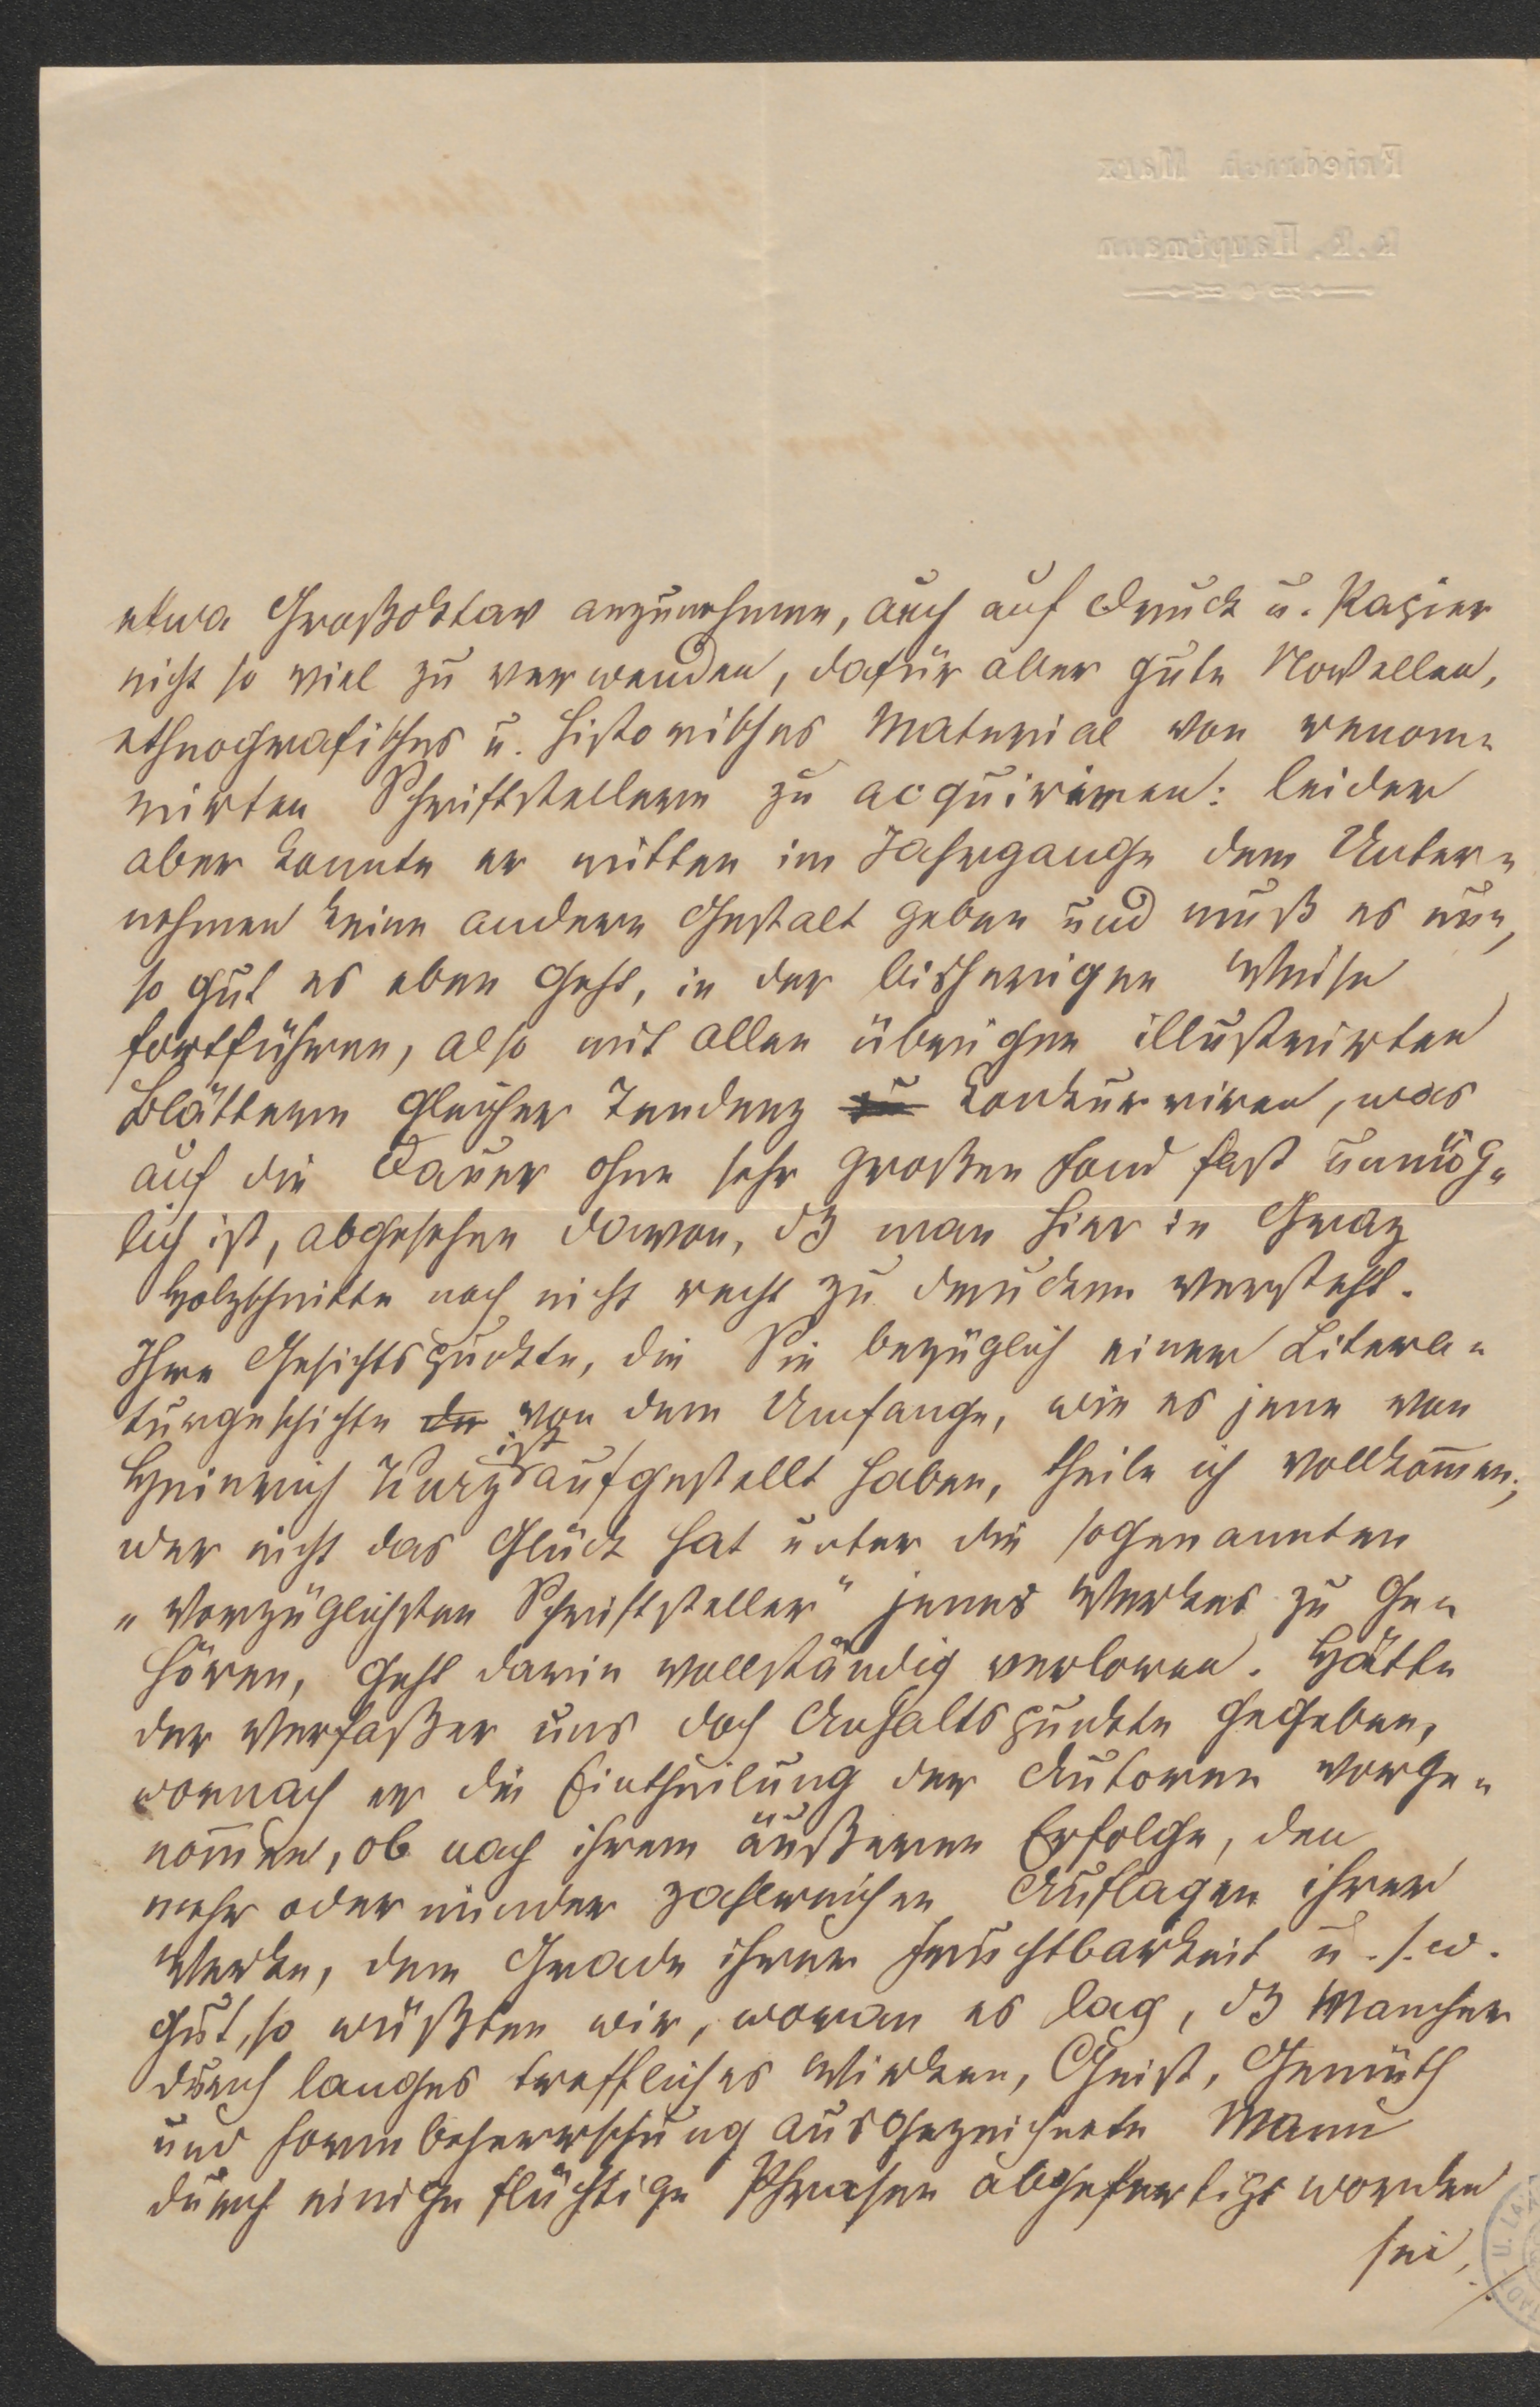 Friedrich Marx
k.k. Hauptmann
etwa Großoktav anzunehmen, auch auf Druck u. Papier
nicht so viel zu verwenden, dafür aber gute Novellen,
ethnografisches u. historisches Material von renom-
mirten Schriftstellern zu acquiriren: leider
aber konnte er mitten im Jahrgange dem Unter-
nehmen keine andere Gestalt geben und muß es nun,
so gut es eben geht, in der bisherigen Weise
fortführen, also mit allen übrigen illustrirten
Blättern gleicher Tendenz zu konkurriren, was
auf die Dauer ohne sehr großen Fond fast unmög-
lich ist, abgesehen davon, dß man hier in Graz
Holzschnitte noch nicht recht zu drucken versteht.
Ihre Gesichtspunkte, die Sie bezüglich einer Litera-
turgeschichte der von dem Umfange, wie es jene von
Heinrich Kurz ist aufgestellt haben, theile ich vollkom̄en;
wer nicht das Glück hat unter die sogenannten
„vorzüglichsten Schriftsteller“ jenes Werkes zu ge-
hören, geht darin vollständig verloren. Hätte
der Verfaßer uns doch Anhaltspunkte gegeben,
wornach er die Eintheilung der Autoren vorge-
nom̄en, ob nach ihrem äußeren Erfolge, den
mehr oder minder zahlreichen Auflagen ihrer
Werke, dem Grade ihrer Fruchtbarkeit u. s. w.
gut, so wüßten wir, woran es lag, dß mancher
durch langes treffliches Wirken, Geist, Gemüth
und Formbeherrschung ausgezeichnete Mann
durch einige flüchtige Phrasen abgefertigt worden
sei,
./.